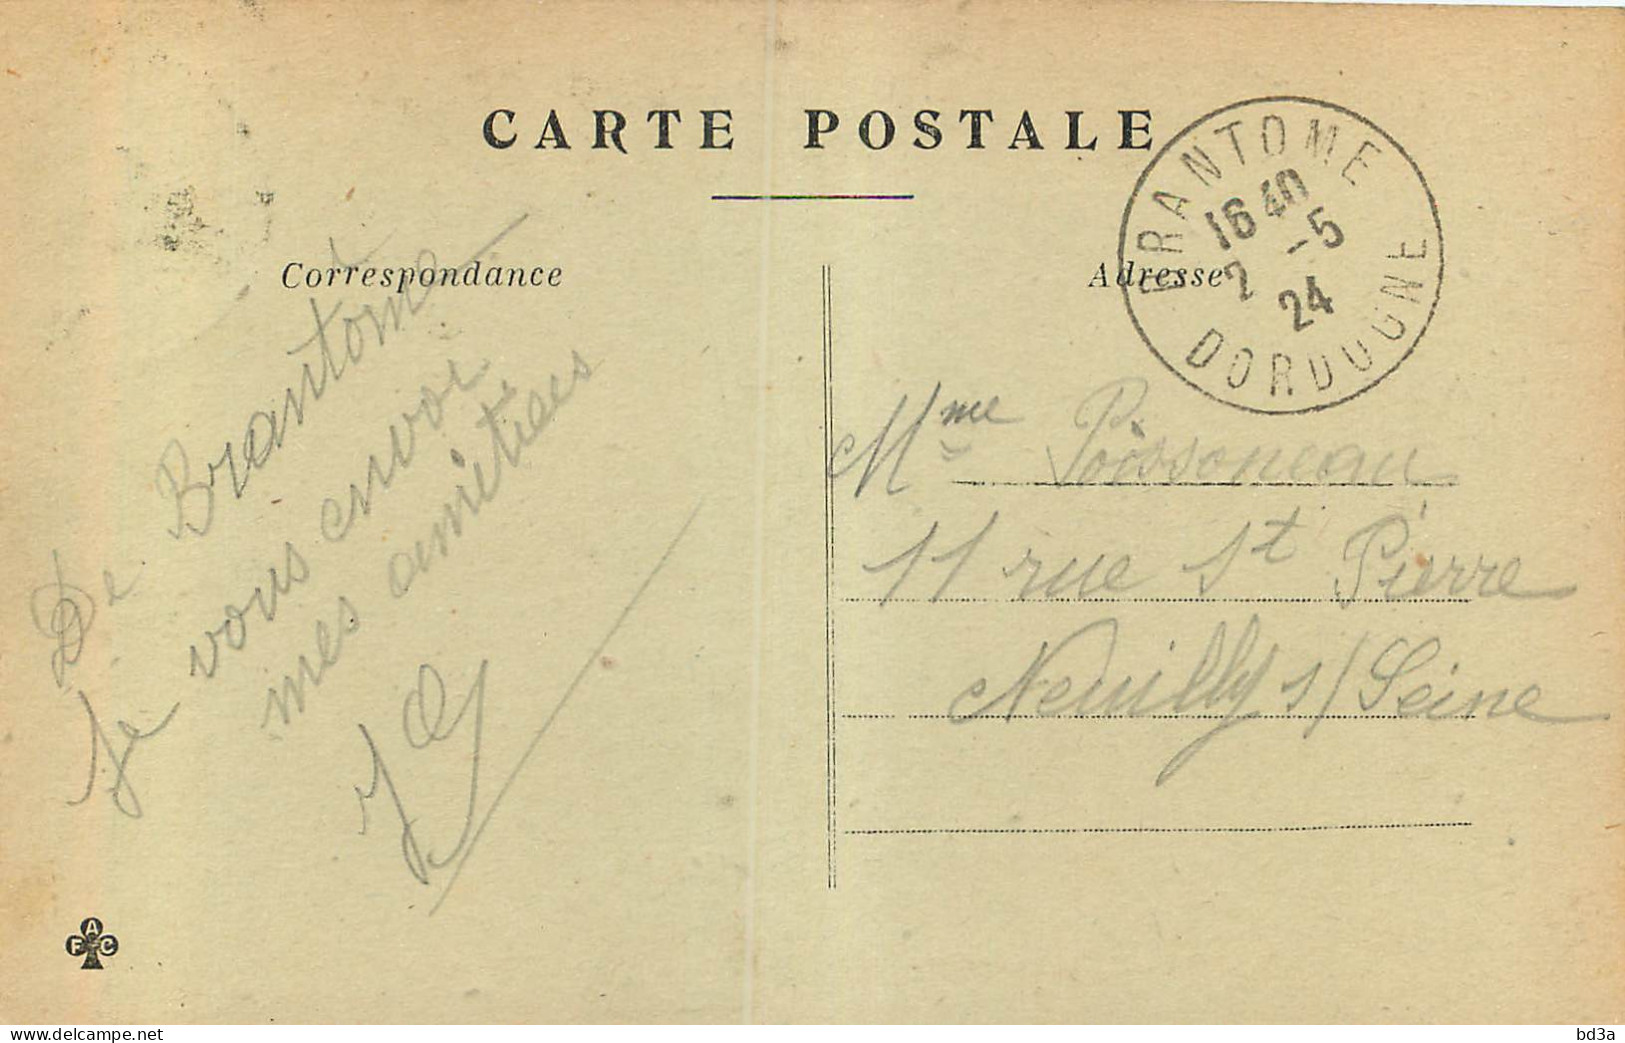 CARTE POSTALE
Correspondance
Adresse
BRANTOME
16 40
2 -5
24
DORDOGNE
De Brantome
Je vous envoie
mes amitiees
Mme Poissoneau
11 rue St Pierre
Neuilly s/Seine
A
F C
delcampe.net
bd3a